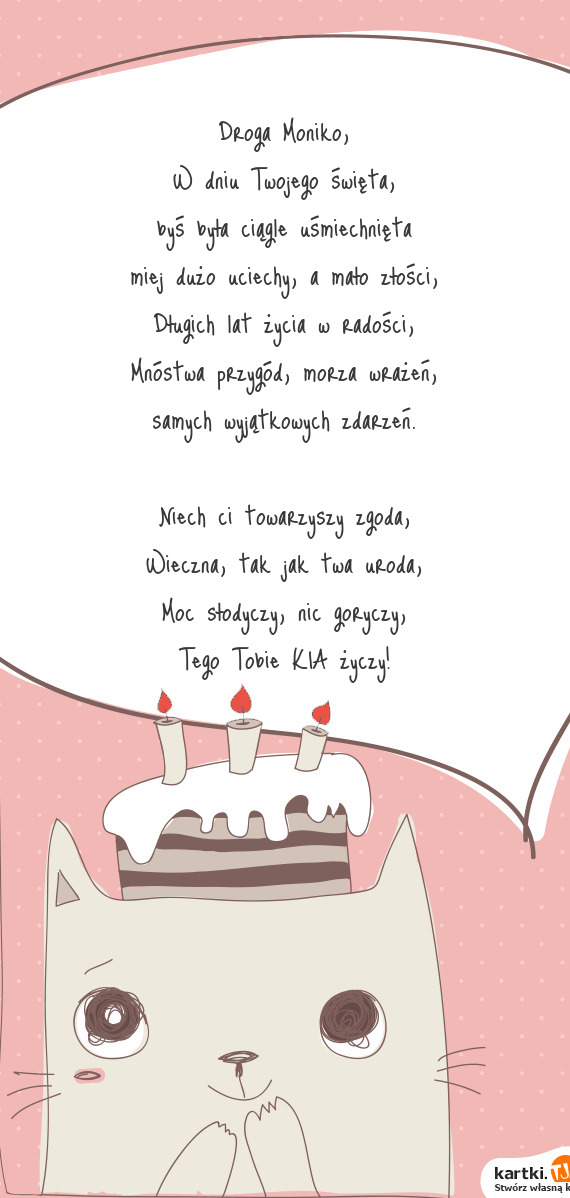 Droga Moniko,
W dniu Twojego święta,
byś była ciągle uśmiechnięta
miej dużo uciechy, a mało złości,
Długich lat życia w radości,
Mnóstwa przygód, morza wrażeń,
samych wyjątkowych zdarzeń.
Niech ci towarzyszy zgoda,
Wieczna, tak jak twa uroda,
Moc słodyczy, nic goryczy,
Tego Tobie KIA życzy!
kartki.TJ
Stwórz własną k